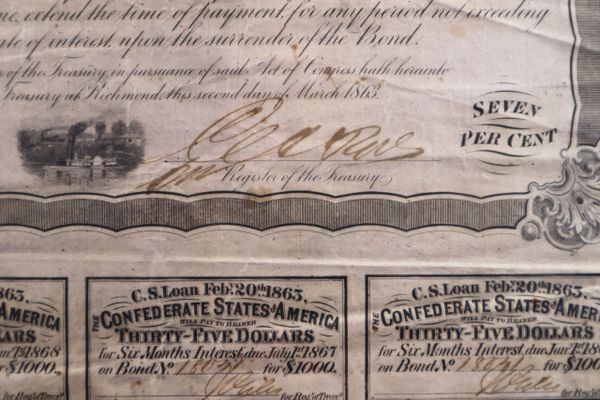 ne, extend the time of payment, for any period not exceeding
te of interest, upon the surrender of the Bond.
of the Treasury, in pursuance of said Act of Congress hath hereunto
Treasury at Richmond, this second day of March 1863.
SEVEN
PER CENT
Register of the Treasury
863.
AMERICA
ARS
1868
$1000.
for Reg.r of Treas.y
C.S. Loan Feb.y 20.th 1863.
THE CONFEDERATE STATES OF AMERICA
WILL PAY TO BEARER
THIRTY-FIVE DOLLARS
for Six Months Interest due July 1.st 1867
on Bond N.o for $1000.
for Reg.r of Treas.y
C.S. Loan Feb.y 20.th 1863.
THE CONFEDERATE STATES OF AMERI
WILL PAY TO BEARER
THIRTY-FIVE DOLLARS
for Six Months Interest, due Jan.y 1.st 18
on Bond N.o for $1000.
for Reg.r of